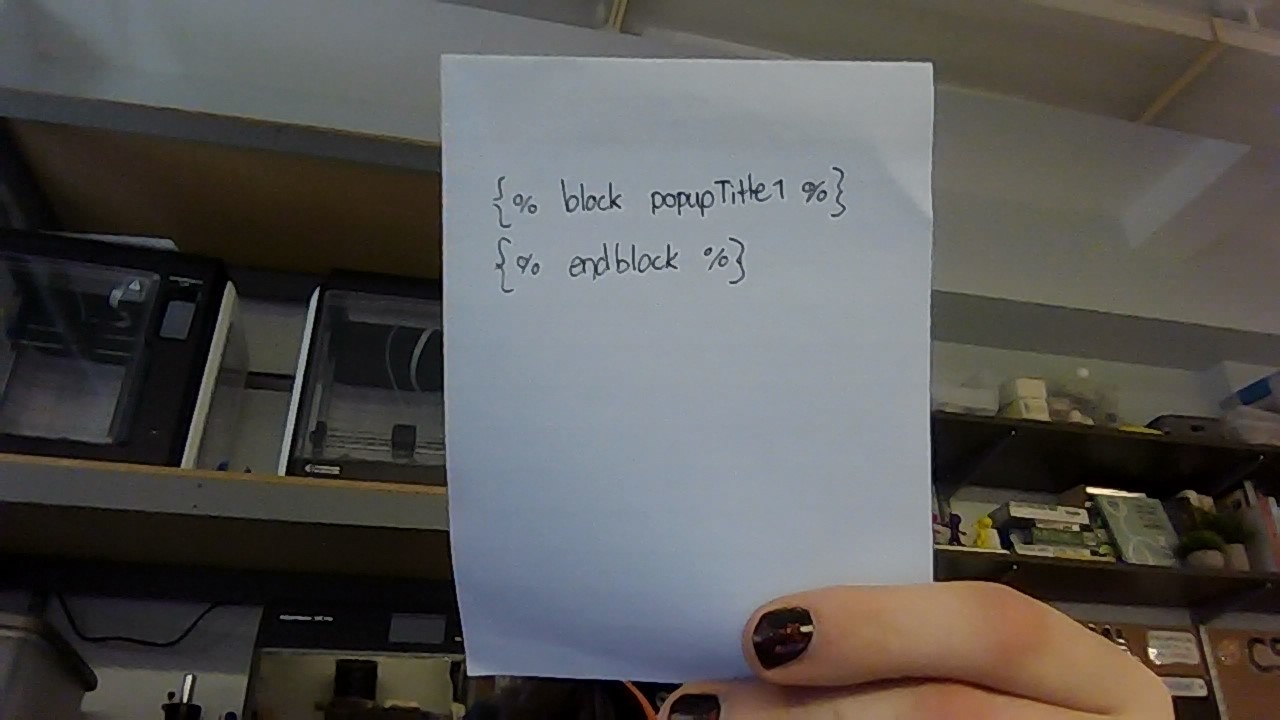 {% block popupTitle1 %}
{% endblock %}